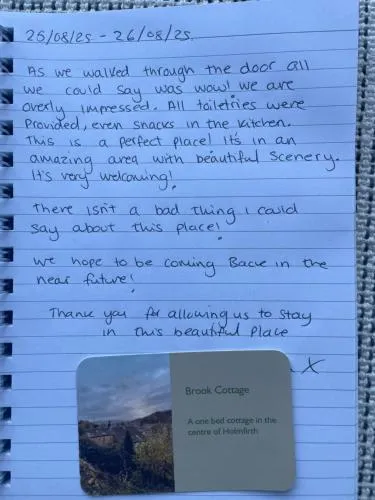 25/08/25 - 26/08/25.
As we walked through the door all
we could say was wow! we are
overly impressed. All toiletries were
Provided, even snacks in the kitchen.
This is a perfect place! It's in an
amazing area with beautiful scenery.
It's very welcoming!
There isn't a bad thing I could
say about this place!
We hope to be coming Back in the
near future!
Thank you for allowing us to stay
in this beautiful place
X
Brook Cottage
A one bed cottage in the
centre of Holmfirth